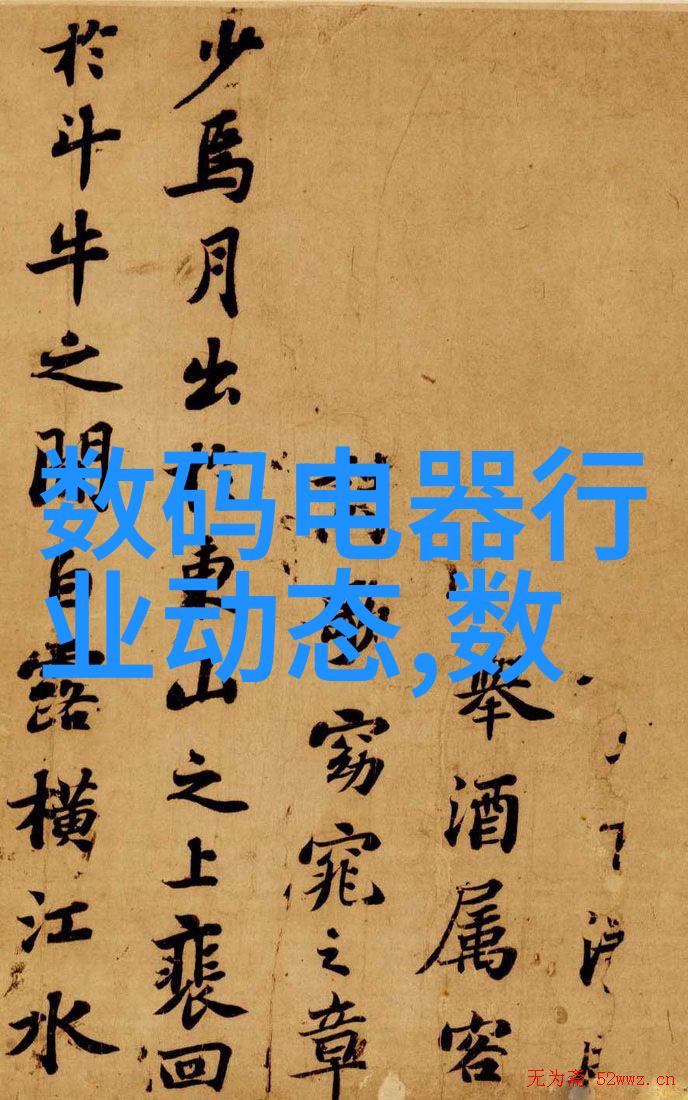 舉酒属客
窈窕之章
少焉月出於東山之上裴回
於斗牛之間白露橫江水
数码电器行
业动态,数
无为斋 52wwz.cn